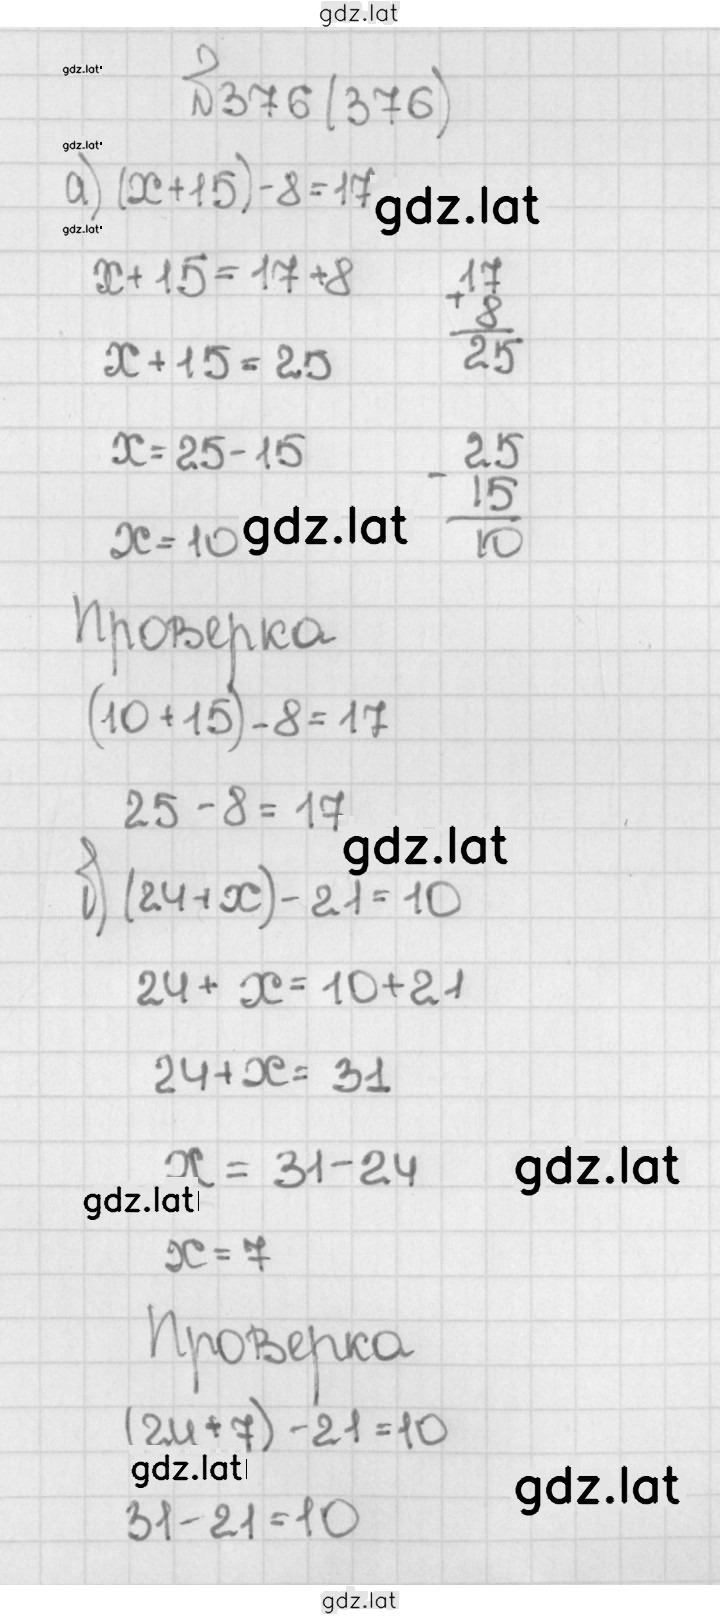 gdz.lat
gdz.lat
№376(376)
gdz.lat
а) (x+15)-8=17
gdz.lat
gdz.lat
x+15=17+8
17
+ 8
25
x+15=25
x=25-15
25
- 15
10
x=10
gdz.lat
Проверка
(10+15)-8=17
25-8=17
gdz.lat
б) (24+x)-21=10
24+x=10+21
24+x=31
x=31-24
gdz.lat
gdz.lat
x=7
Проверка
(24+7)-21=10
gdz.lat
gdz.lat
31-21=10
gdz.lat